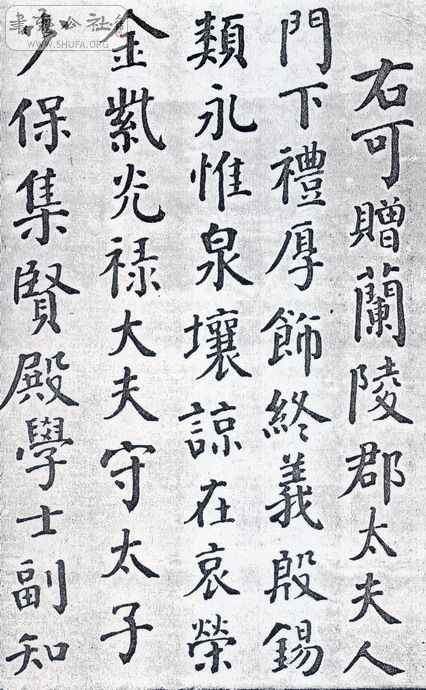 右可贈蘭陵郡太夫人
門下禮厚飾終義殷錫
類永惟泉壤諒在哀榮
金紫光禄大夫守太子
少保集賢殿學士副知
WWW.SHUFA.ORG